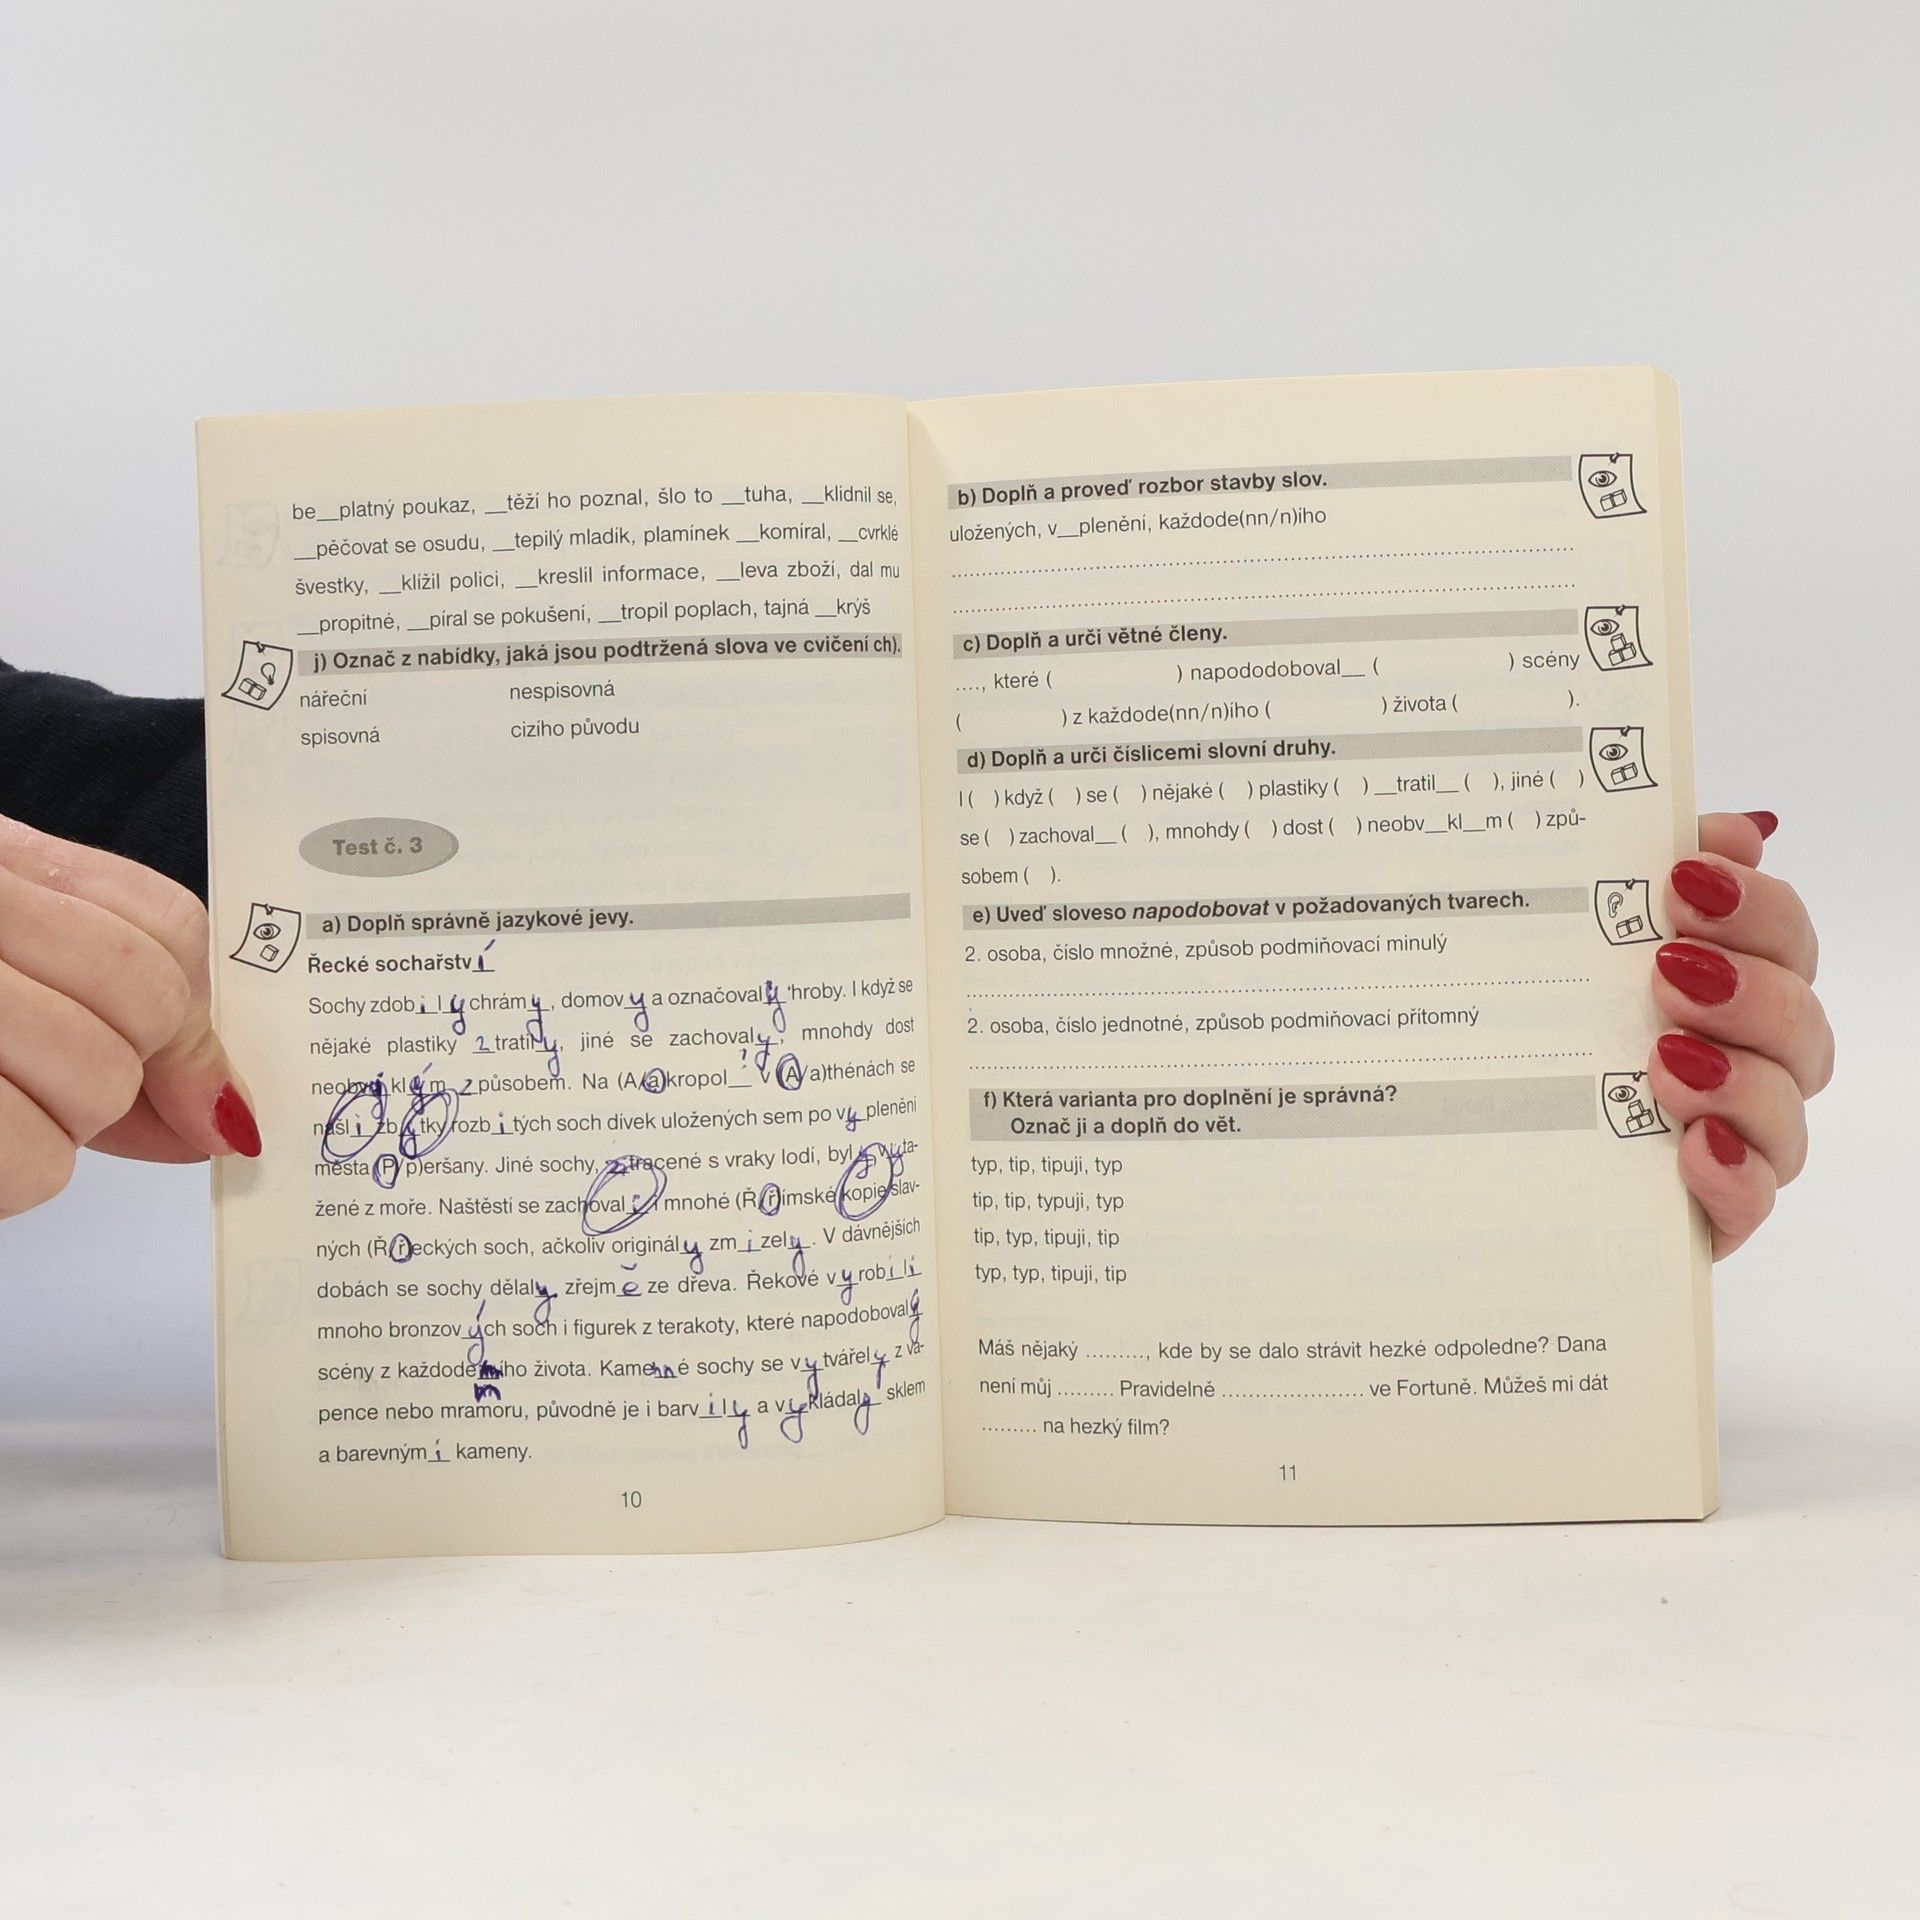 be__platný poukaz, __těží ho poznal, šlo to __tuha, __klidnil se,
__pěčovat se osudu, __tepilý mladík, plamínek __komíral, __cvrklé
švestky, __klížil polici, __kreslil informace, __leva zboží, dal mu
__propitné, __píral se pokušení, __tropil poplach, tajná __krýš
j) Označ z nabídky, jaká jsou podtržená slova ve cvičení ch).
nářeční nespisovná
spisovná cizího původu
Test č. 3
a) Doplň správně jazykové jevy.
Řecké sochařství
Sochy zdobily chrámy, domovy a označovaly hroby. I když se
nějaké plastiky ztratily, jiné se zachovaly, mnohdy dost
neobvyklým způsobem. Na (A/a)kropol__? v (A/a)thénách se
našli zbytky rozbitých soch dívek uložených sem po vyplenění
města (P/p)eršany. Jiné sochy, ztracené s vraky lodí, byly vyta-
žené z moře. Naštěstí se zachovali i mnohé (Ř/ř)ímské kopie slav-
ných (Ř/ř)eckých soch, ačkoliv originály zmizely. V dávnějších
dobách se sochy dělaly zřejmě ze dřeva. Řekové vyrobili
mnoho bronzových soch i figurek z terakoty, které napodobovaly
scény z každodenního života. Kamenné sochy se vytvářely z vá-
pence nebo mramoru, původně je i barvily a vykládaly sklem
a barevnými kameny.
10
b) Doplň a proveď rozbor stavby slov.
uložených, v__plenění, každode(nn/n)ího
c) Doplň a urči větné členy.
...., které ( ) napododoboval__ ( ) scény
( ) z každode(nn/n)ího ( ) života ( ).
d) Doplň a urči číslicemi slovní druhy.
I ( ) když ( ) se ( ) nějaké ( ) plastiky ( ) __tratil__ ( ), jiné ( )
se ( ) zachoval__ ( ), mnohdy ( ) dost ( ) neobv__kl__m ( ) způ-
sobem ( ).
e) Uveď sloveso napodobovat v požadovaných tvarech.
2. osoba, číslo množné, způsob podmiňovací minulý
2. osoba, číslo jednotné, způsob podmiňovací přítomný
f) Která varianta pro doplnění je správná?
Označ ji a doplň do vět.
typ, tip, tipuji, typ
tip, tip, typuji, typ
tip, typ, tipuji, tip
typ, typ, tipuji, tip
Máš nějaký ........., kde by se dalo strávit hezké odpoledne? Dana
není můj ......... Pravidelně ...................... ve Fortuně. Můžeš mi dát
......... na hezký film?
11